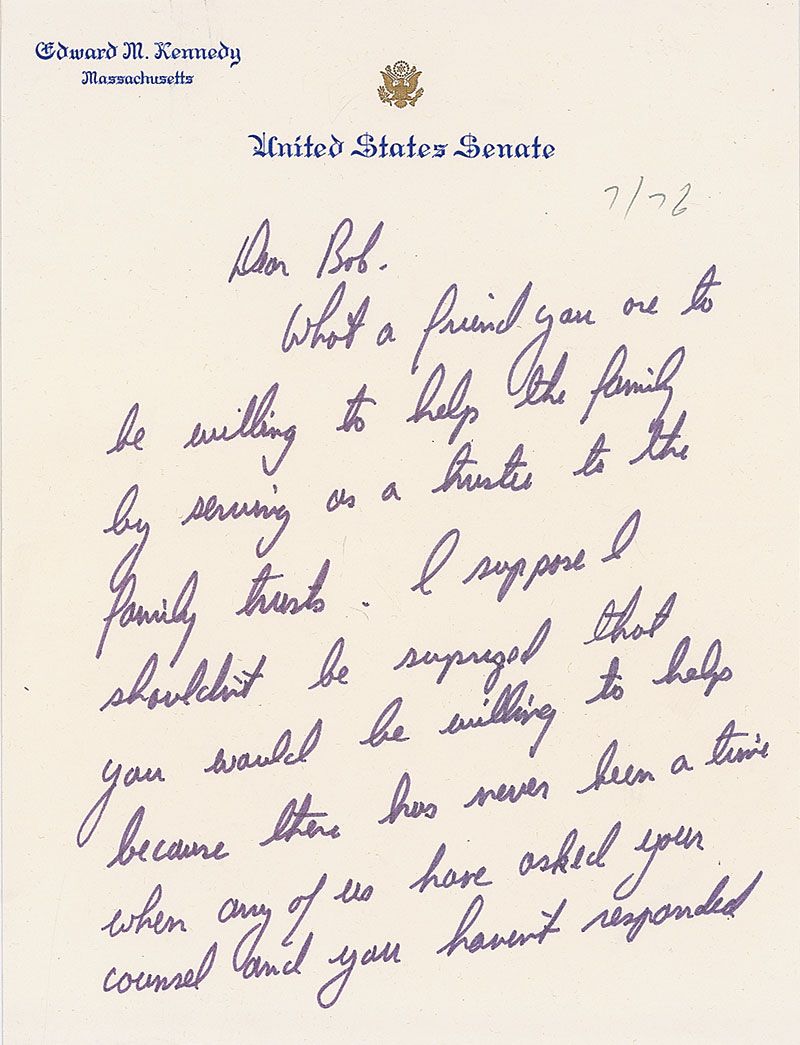 Edward M. Kennedy
Massachusetts
United States Senate
7/76
Dear Bob.
What a friend you are to
be willing to help the family
by serving as a trustee to the
family trusts. I suppose I
shouldn't be suprized that
you would be willing to help
because there has never been a time
when any of us have asked your
counsel and you haven't responded